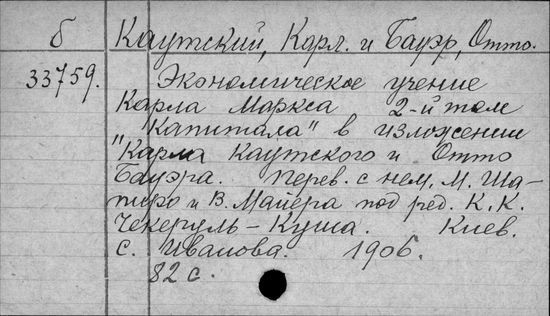 Б Каутский, Карл. и Бауэр, Отто.
33759. Экономическое учение
Карла Маркса 2-й том
Капитала" в изложении
"Карла Каутского и Отто
Бауэра. Перев. с нем. М. Ша-
пиро и В. Майера под ред. К. К.
Чекеруль-Куша. Киев.
С. Иванова. 1906.
82 с.